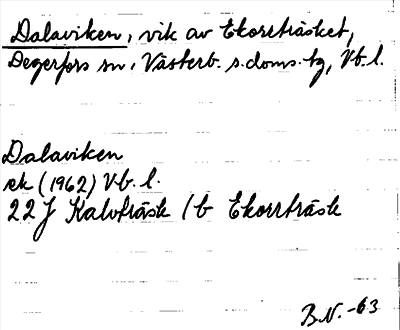 Dalaviken, vik av Ekorrträsket,
Degerfors sn, Västerb. s. doms. tg, Vb. l.
Dalaviken
ek (1962) Vb. l.
22 J Kalvträsk 1 b Ekorrträsk
B.N. -63